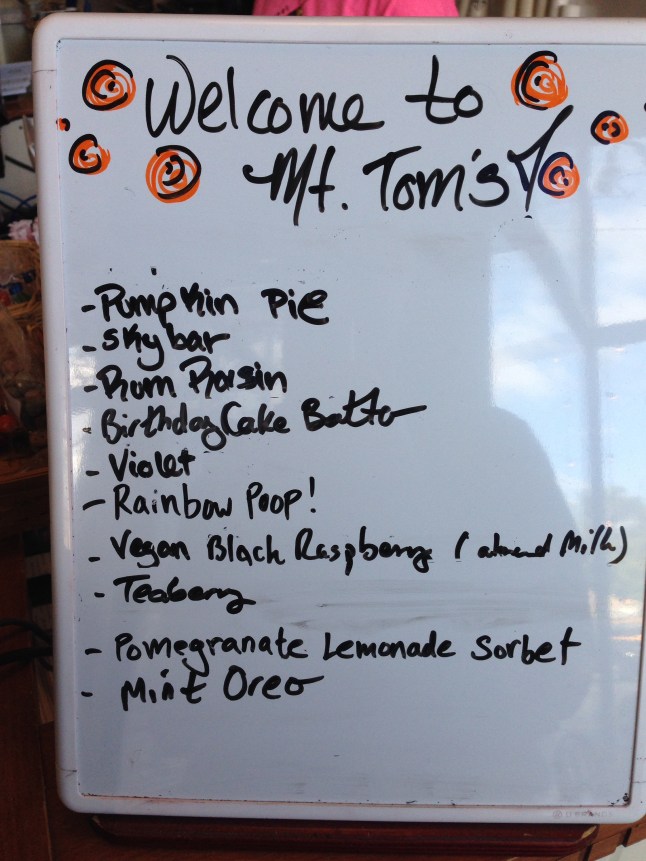 Welcome to
Mt. Tom's!
- Pumpkin Pie
- Skybar
- Rum Raisin
- Birthday Cake Batter
- Violet
- Rainbow Poop!
- Vegan Black Raspberry (almond Milk)
- Teaberry
- Pomegranate Lemonade Sorbet
- Mint Oreo